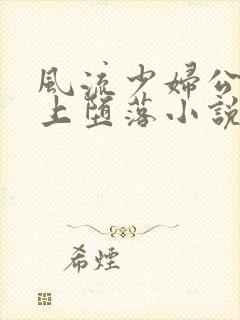 風流少婦公
上墮落小說
希煙